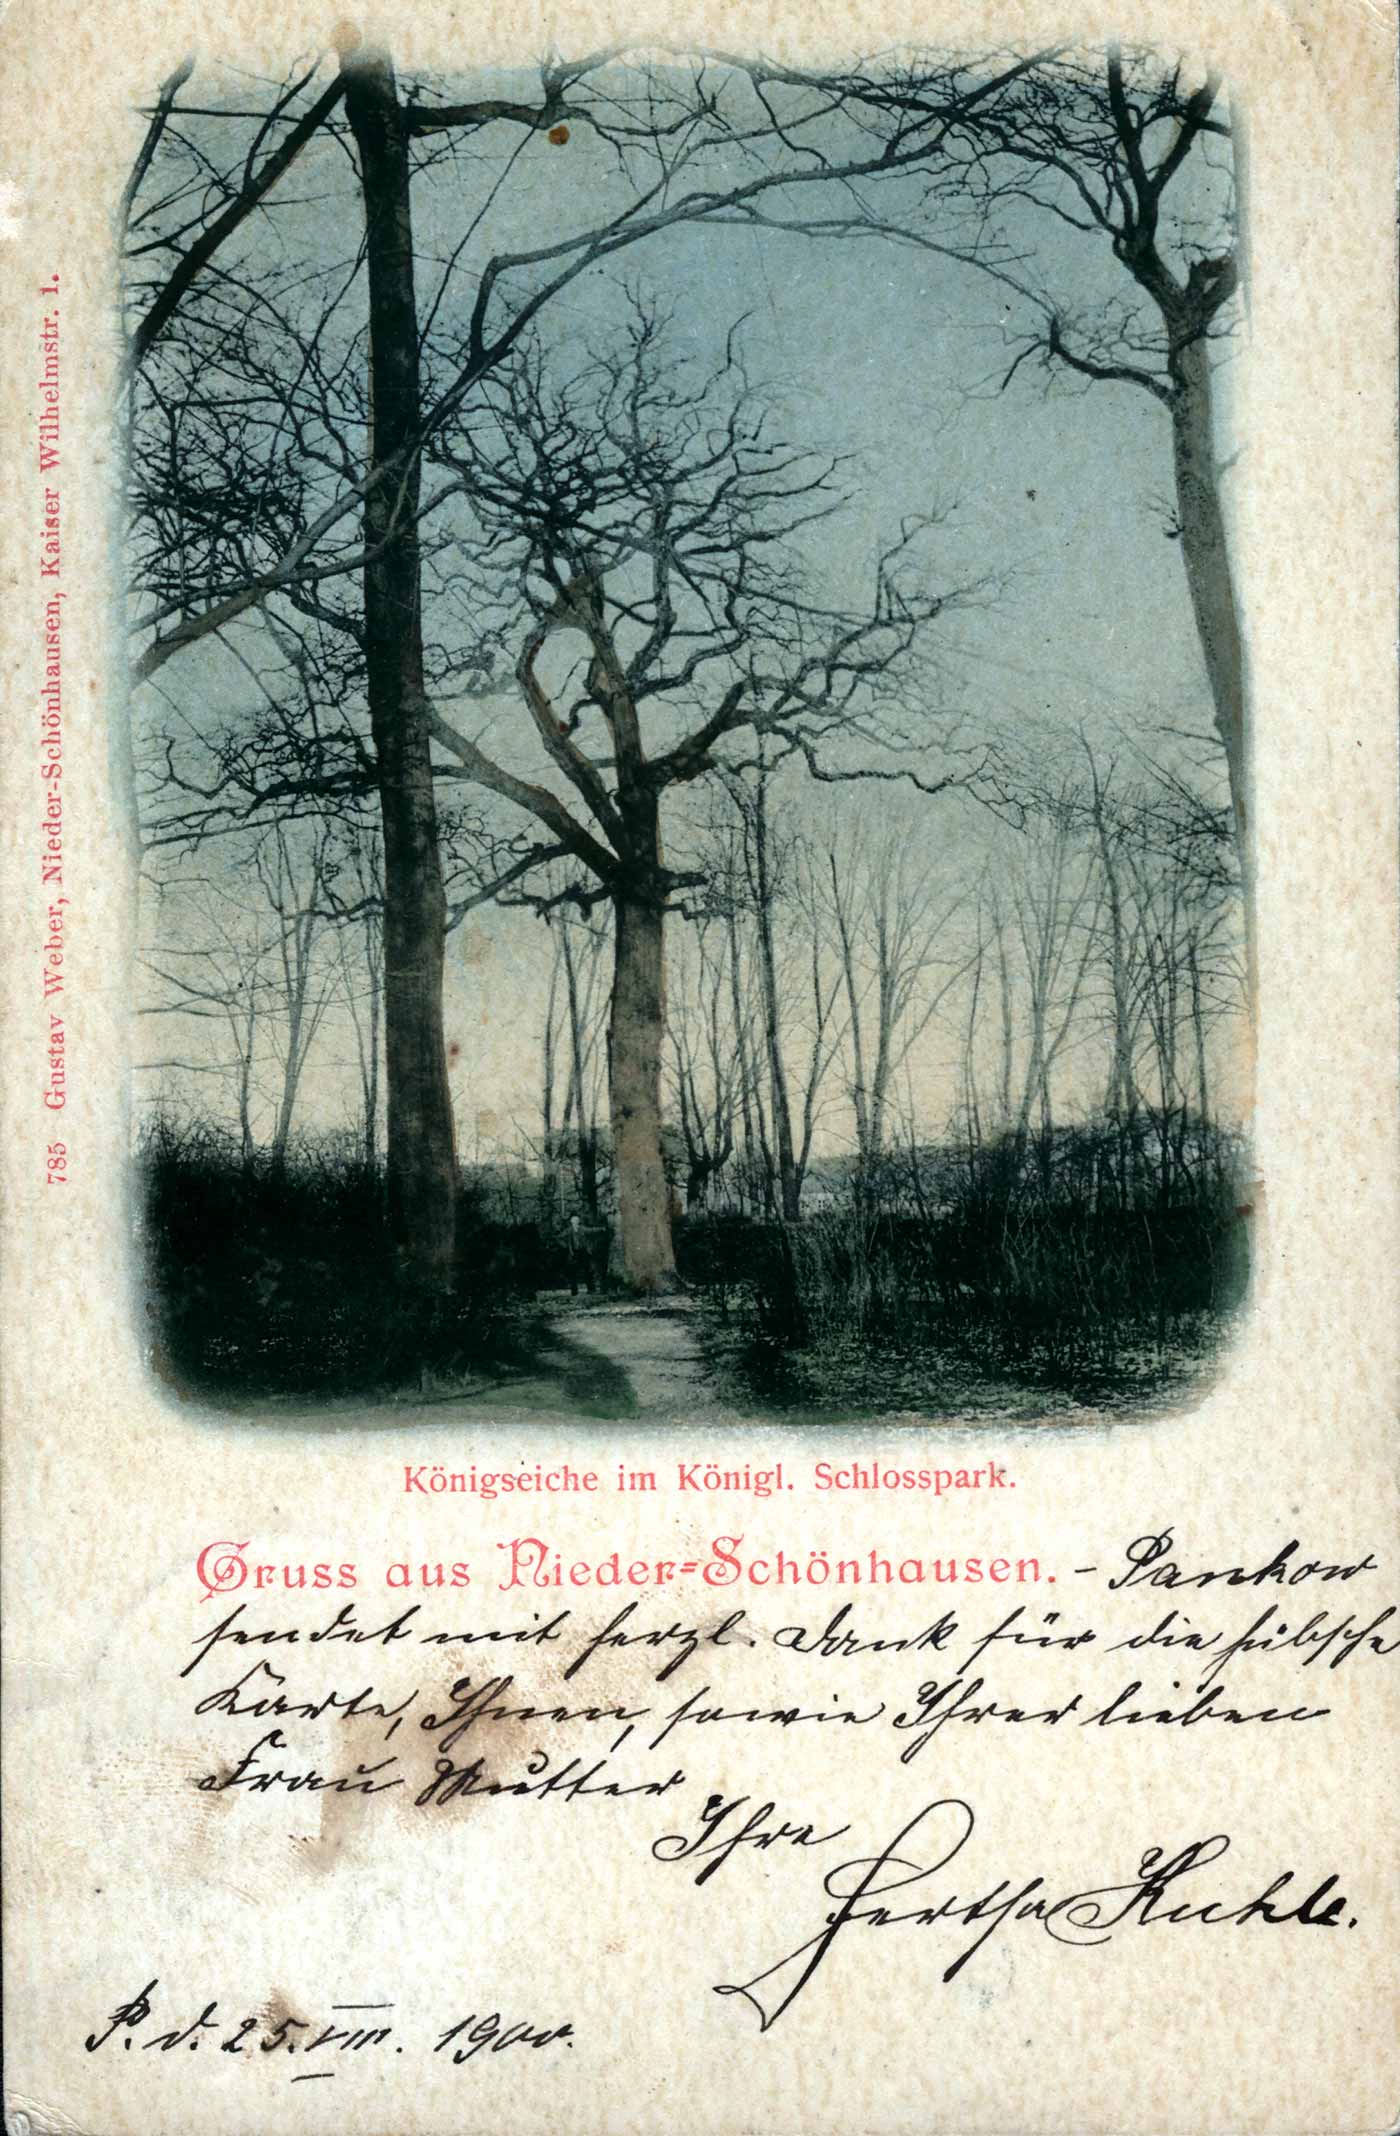 785 Gustav Weber, Nieder-Schönhausen, Kaiser Wilhelmstr. 1.
Königseiche im Königl. Schlosspark.
Gruss aus Nieder-Schönhausen. - Pankow
sendet mit herzl. Dank für die hübsche
Karte, Ihnen, sowie Ihrer lieben
Frau Mutter
Ihre
Hertha Kuhle.
P. d. 25. VIII. 1900.